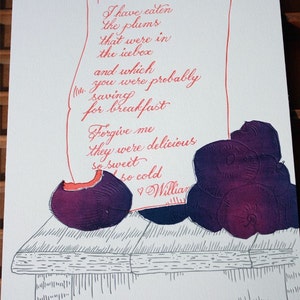 I have eaten
the plums
that were in
the icebox
and which
you were probably
saving
for breakfast
Forgive me
they were delicious
so sweet
so cold
William